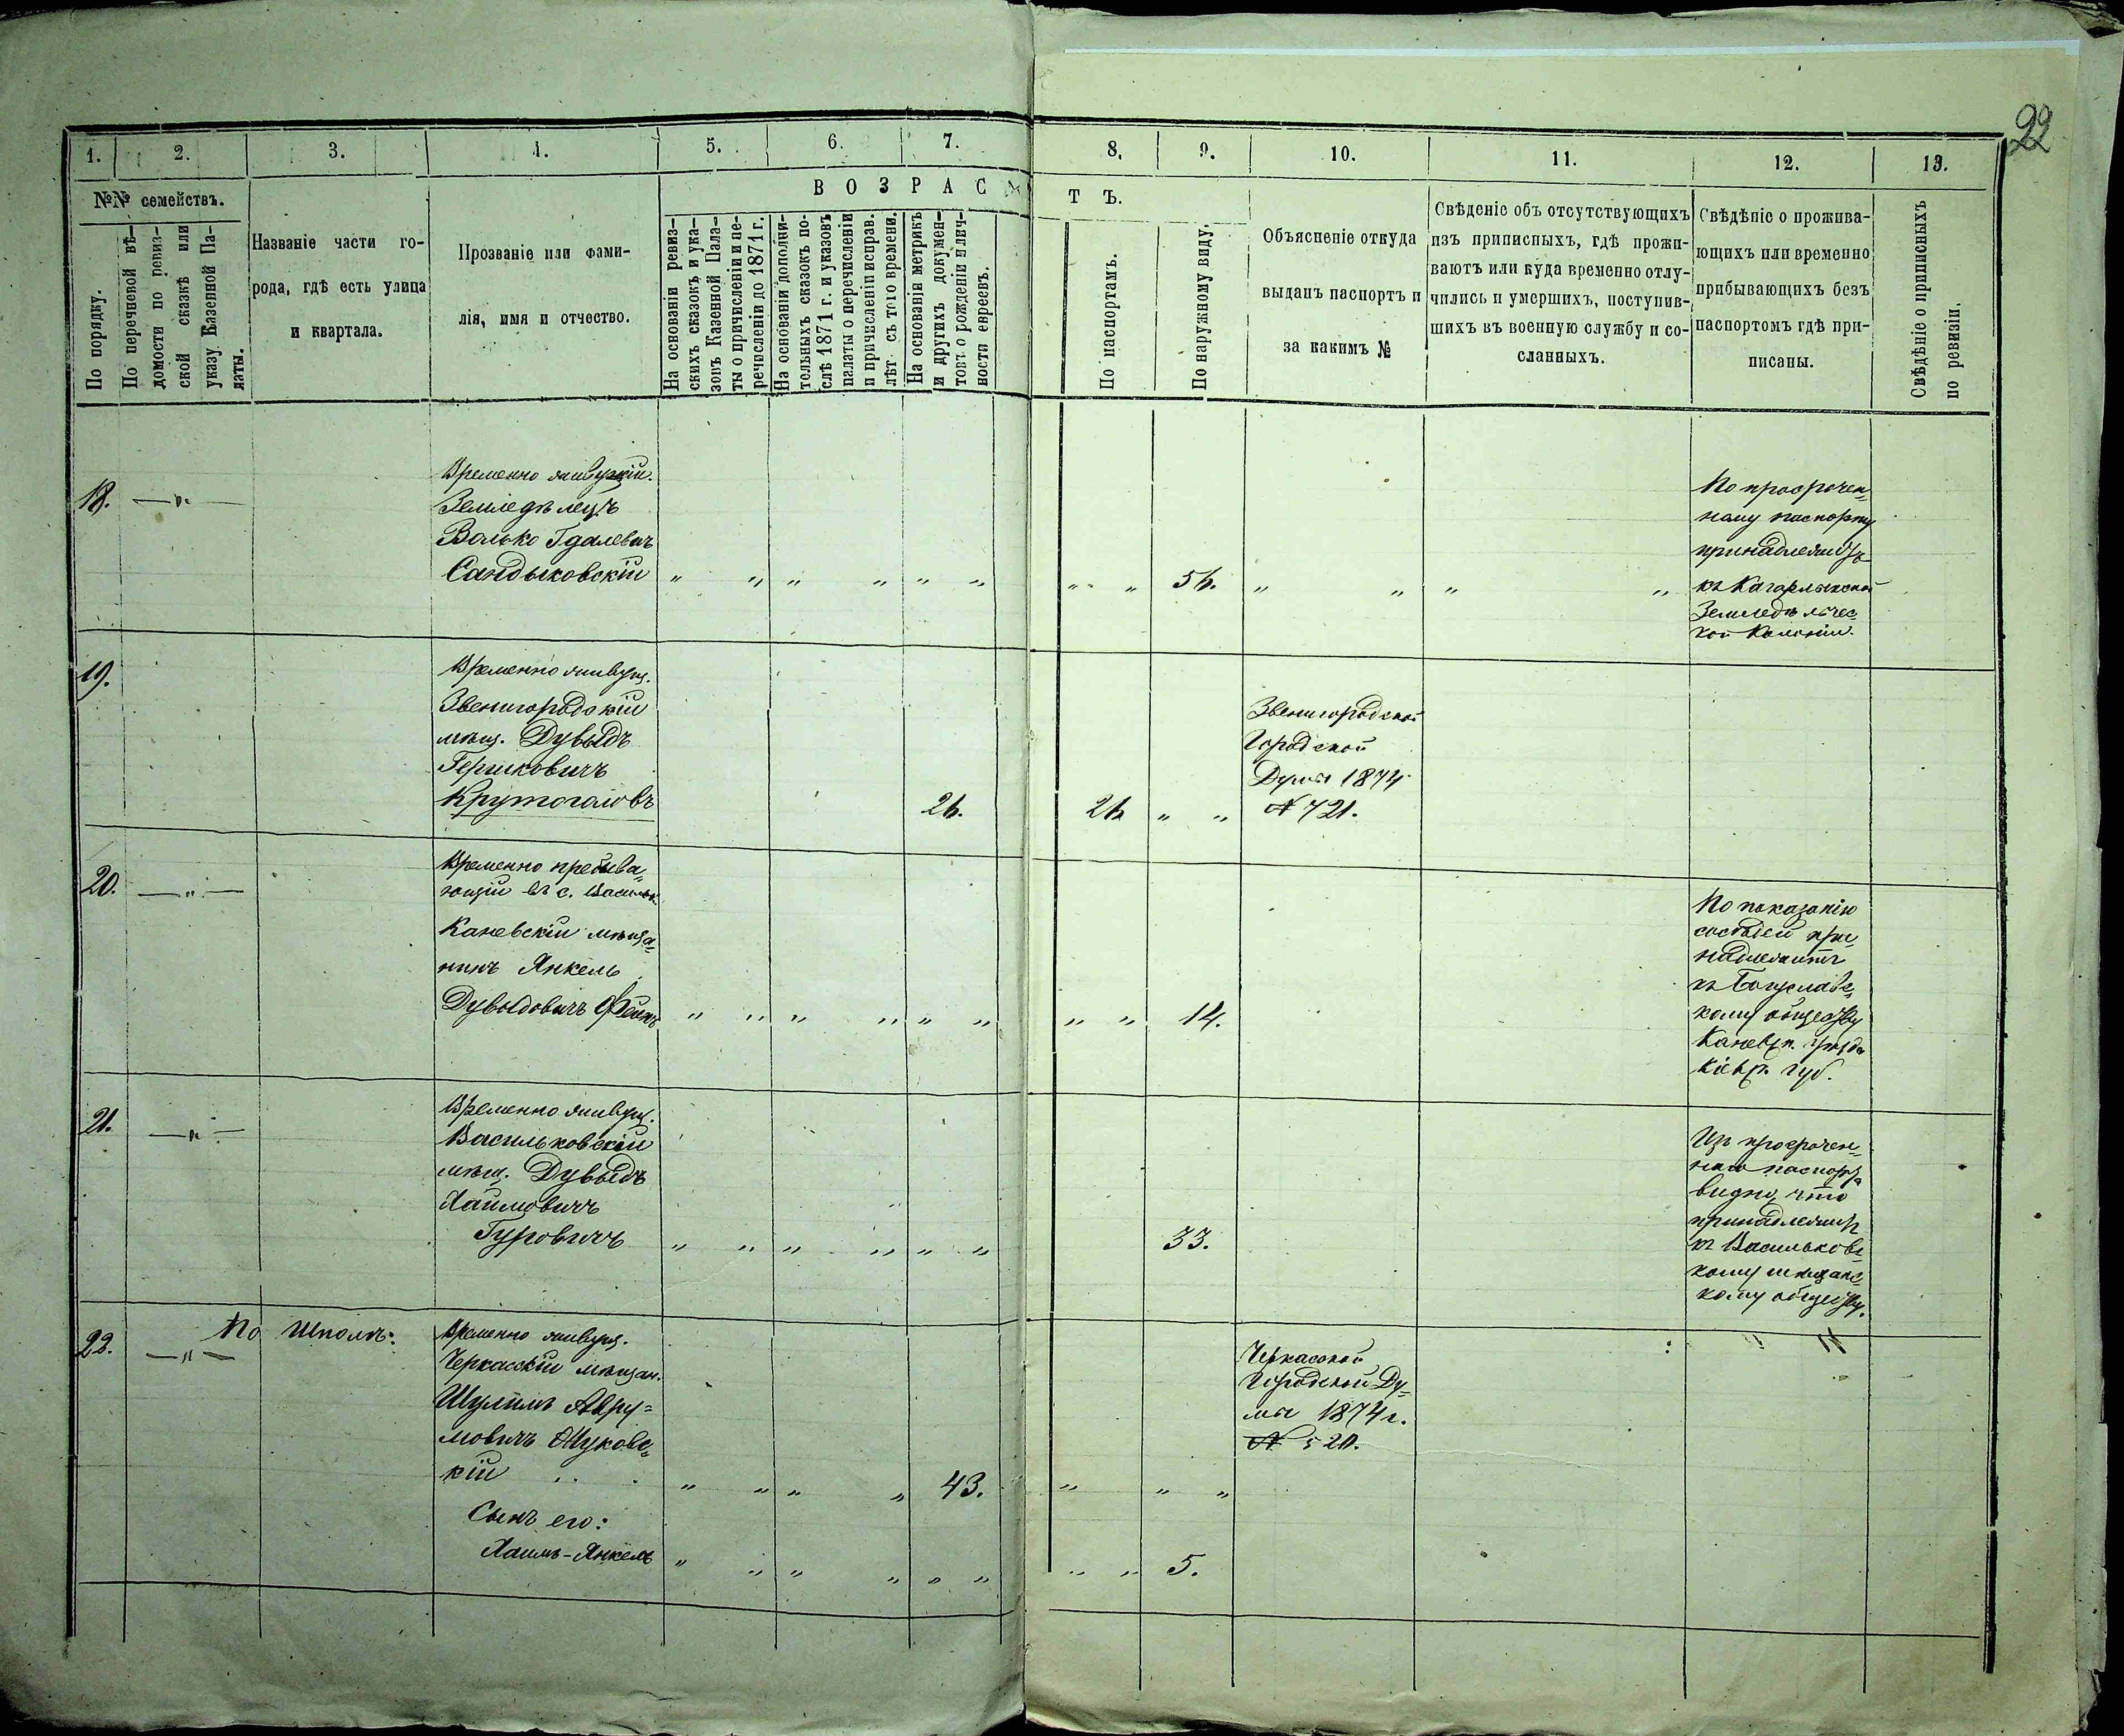 22
1. 2. 3. 4. 5. 6. 7. 8. 9. 10. 11. 12. 13.
№№ семействъ.
По порядку.
По перечневой вѣ-
домости по ревиз-
ской сказкѣ или
указу Казенной Па-
латы.
Названіе части го-
рода, гдѣ есть улица
и квартала.
Прозваніе или фами-
лія, имя и отчество.
ВОЗРАС
ТЪ.
На основаніи ревиз-
скихъ сказокъ и ука-
зовъ Казенной Пала-
ты о причисленіи и пе-
речисленіи до 1871 г.
На основаніи дополни-
тельныхъ сказокъ по-
слѣ 1871 г. и указовъ
палаты о перечисленіи
и причисленіи исправ.
лѣт съ того времени.
На основаніи метрикъ
и другихъ докумен-
товъ о рожденіи и лич-
ности евреевъ.
По паспортамъ.
По наружному виду.
Объясненіе откуда
выданъ паспортъ и
за какимъ №
Свѣденіе объ отсутствующихъ
изъ приписныхъ, гдѣ прожи-
ваютъ или куда временно отлу-
чились и умершихъ, поступив-
шихъ въ военную службу и со-
сланныхъ.
Свѣдѣніе о прожива-
ющихъ или временно
прибывающихъ безъ
паспортомъ гдѣ при-
писаны.
Свѣдѣніе о приписныхъ
по ревизіи.
18. —„—
Временно живущій.
Земледѣлецъ
Волько Гдалевич
Сандыковскій „ „ „ „ „ „ „ „ 56. „ „ „ „
По просрочен-
ному паспорту
принадлежитъ
къ Кагарлыкской
Земледѣльчес-
кой Колоніи.
19.
Временно живущ.
Звенигородскій
мѣщ. Дувыдъ
Гершковичъ
Крутогаловъ 26. 26 „ „
Звенигородской
Городской
Думы 1874
№ 721.
20. —„—
Временно пребыва-
ющій въ с. Васильк.
Каневскій мѣща-
нинъ Янкель
Дувыдовичъ Фейнъ „ „ „ „ „ „ „ „ 14.
По показанію
сосѣдей при-
надлежитъ
къ Богуславс-
кому обществу
Каневск. уѣзда
Кіевск. губ.
21. —„—
Временно живущ.
Васильковскій
мѣщ. Дувыдъ
Хаимовичъ
Гуровичъ „ „ „ „ „ „ 33.
Изъ просрочен-
наго паспорта
видно, что
принадлежитъ
къ Васильковс-
кому мѣщанс-
кому обществу.
22. —„— По Шполѣ:
Временно живущ.
Черкасскій мѣщан.
Шулимъ Авру-
мовичъ Жуковс-
кій „ „ „ „ 43. „ „ „
Черкаской
Городской Ду-
мы 1874 г.
№ 520.
Сынъ его:
Хаимъ-Янкель „ „ „ „ „ „ „ „ 5.